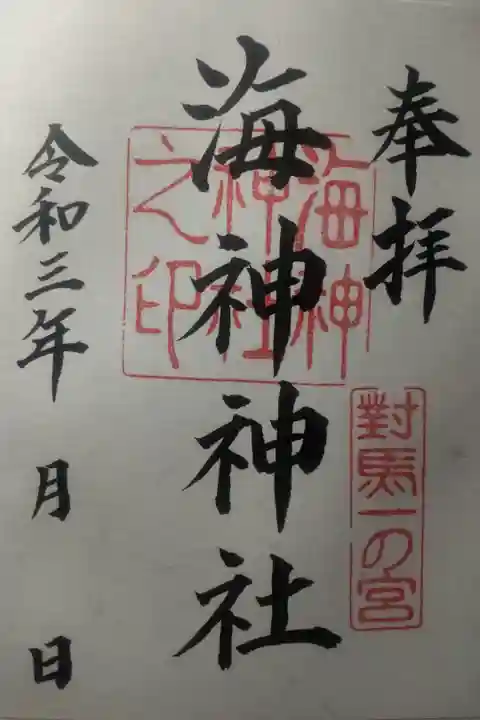 奉拝
對馬一の宮
海神神社
海神神社之印
令和三年 月 日